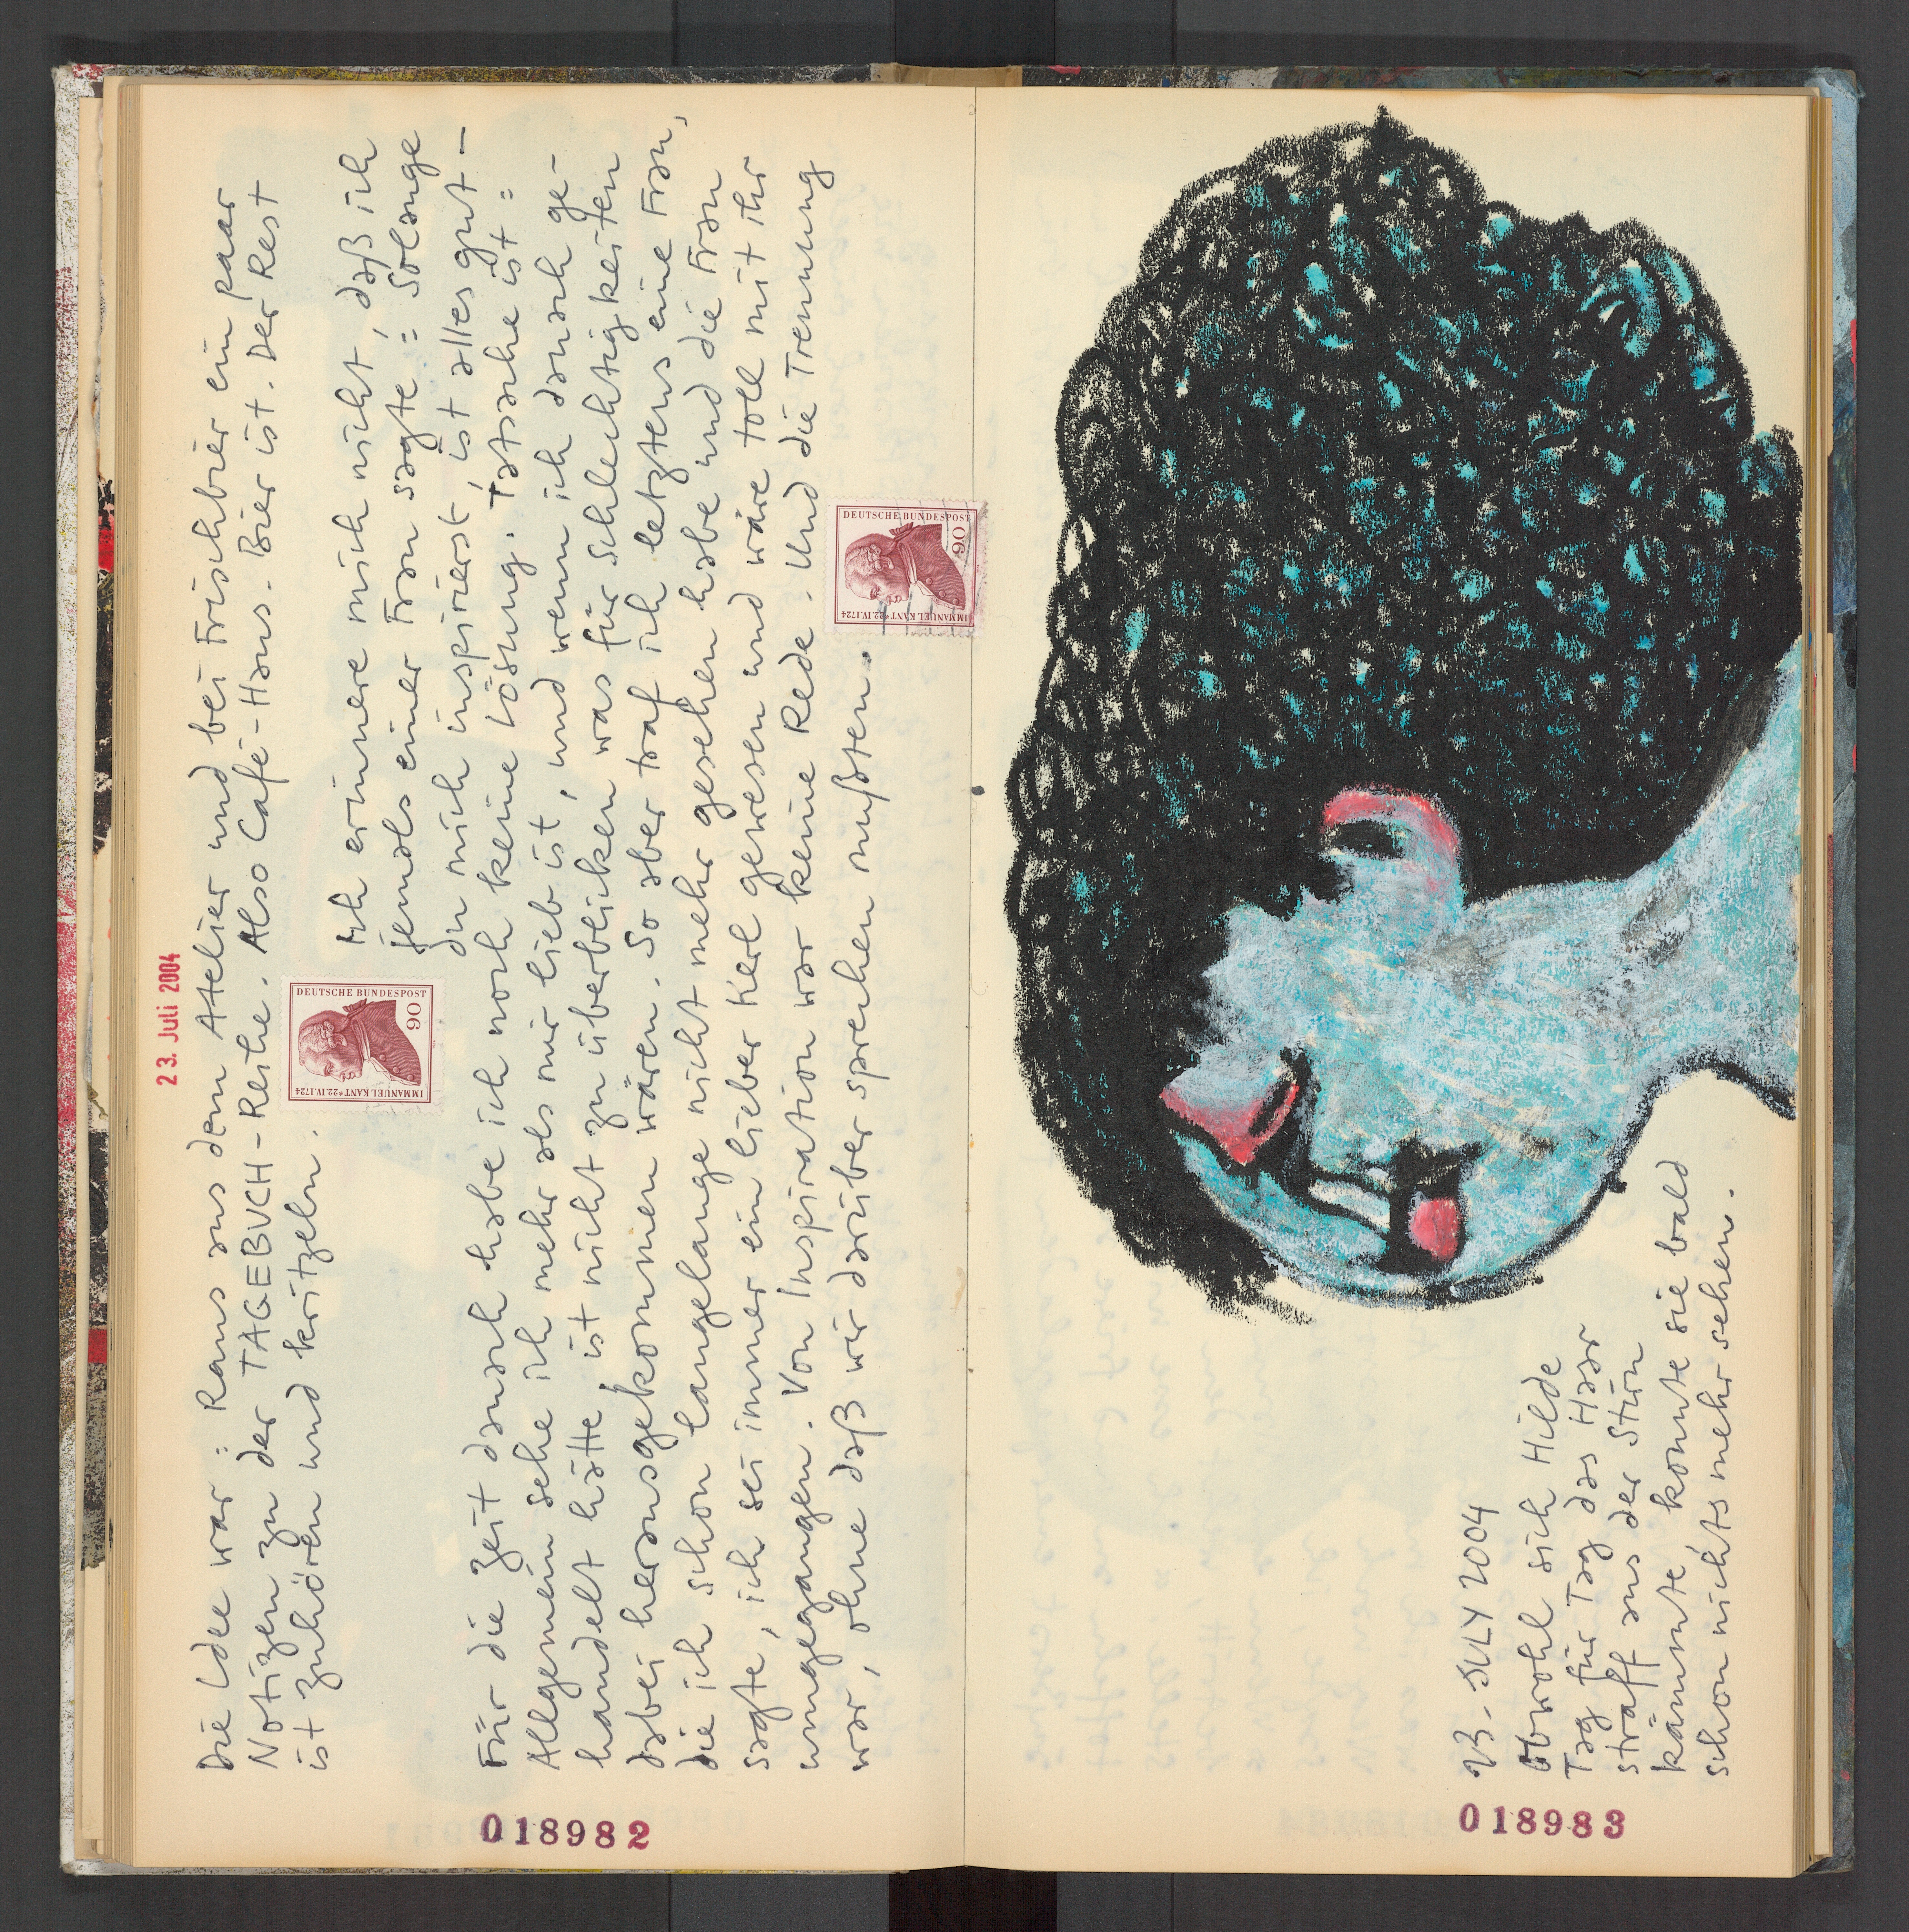 23. Juli 2004
Die Idee war: Raus aus dem Atelier und bei Frischbier ein paar
Notizen zu der TAGEBUCH-Reihe. Also Café-Haus. Bier ist. Der Rest
ist zuhören und kritzeln.
DEUTSCHE BUNDESPOST
90
IMMANUEL KANT * 22.IV.1724
Ich erinnere mich nicht, daß ich
jemals einer Frau sagte: Solange
du mich inspirierst, ist alles gut –
Für die Zeit danach habe ich noch keine Lösung. Tatsache ist:
Allgemein sehe ich mehr als mir lieb ist, und wenn ich danach ge-
handelt hätte ist nicht zu überblicken was für Schlechtigkeiten
dabei herausgekommen wären. So aber traf ich letztens eine Frau,
die ich schon langelange nicht mehr gesehen habe und die Frau
sagte, ich sei immer ein lieber Kerl gewesen und wäre toll mit ihr
umgegangen. Von Inspiration war keine Rede. Und die Trennung
war, ohne daß wir darüber sprechen mußten.
DEUTSCHE BUNDESPOST
90
IMMANUEL KANT * 22.IV.1724
018982
23. JULY 2004
Obwohl sich Hilde
Tag für Tag das Haar
straff aus der Stirn
kämmte, konnte sie bald
schon nichts mehr sehen.
018983